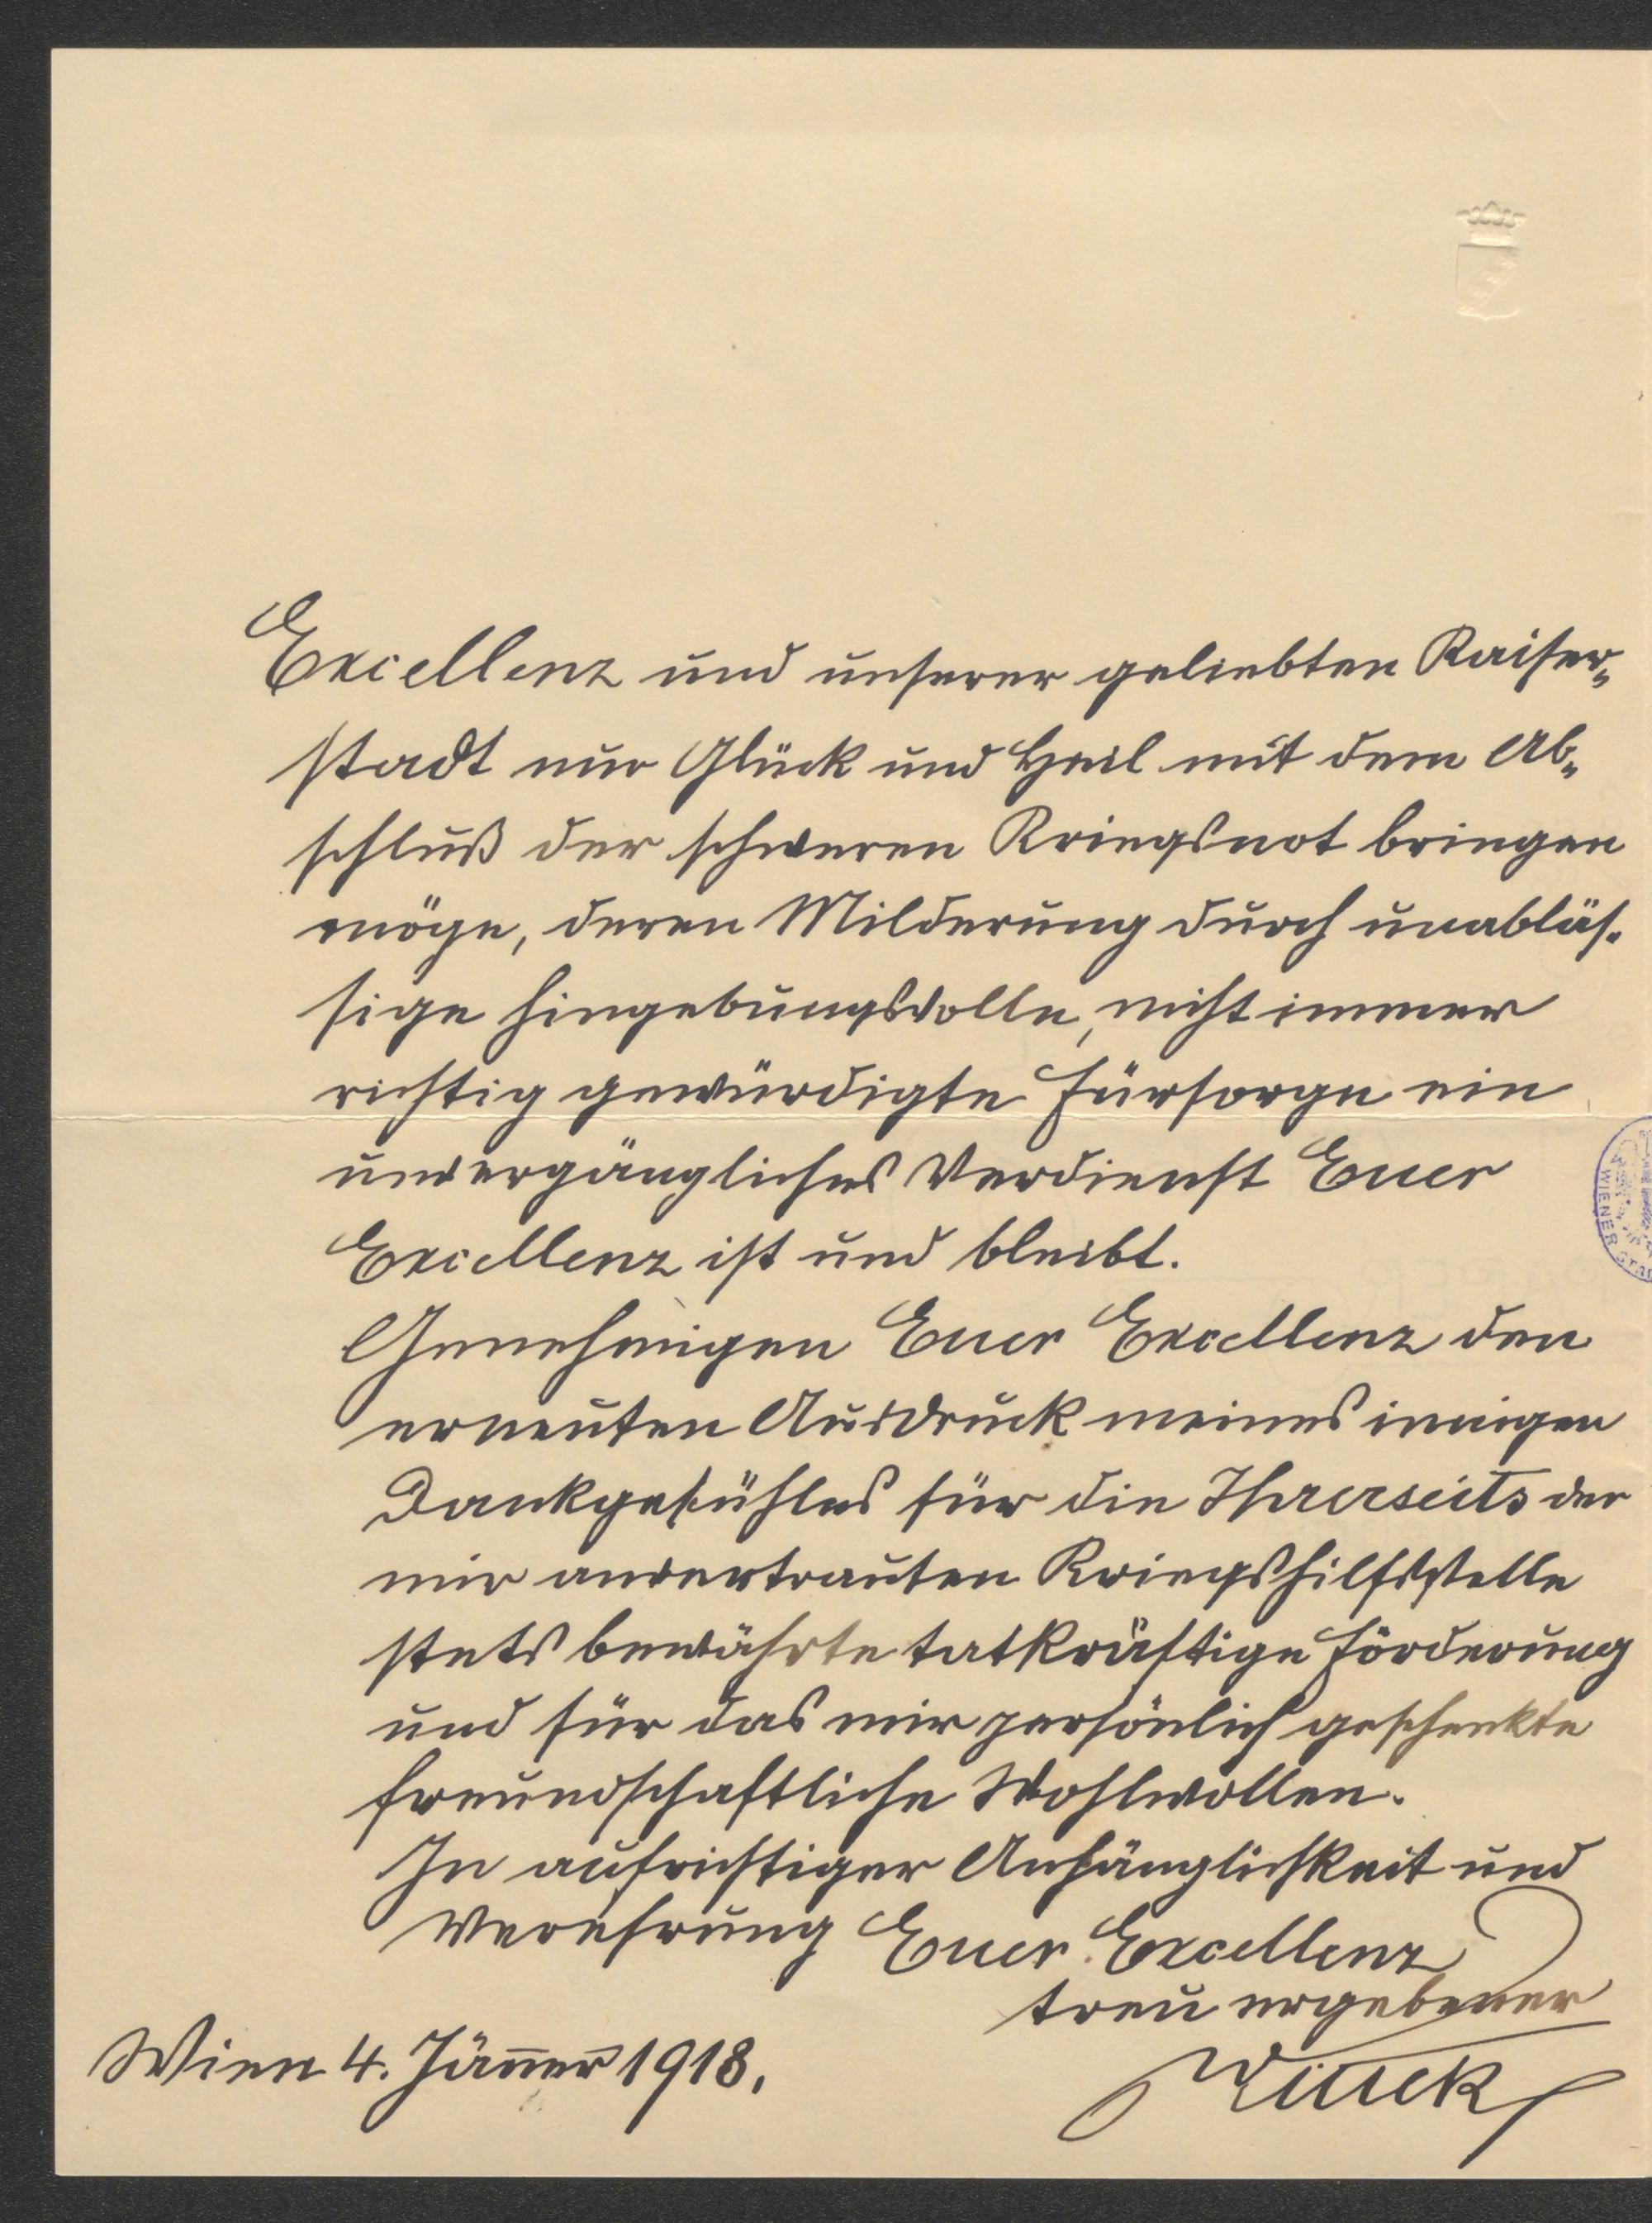 Excellenz und unserer geliebten Kaiser„
stadt nur Glück und Heil mit dem Ab„
schluß der schweren Kriegsnot bringen
möge, deren Milderung durch unabläs„
sige hingebungsvolle, nicht immer
richtig gewürdigte Fürsorge ein
unvergängliches Verdienst Euer
Excellenz ist und bleibt.
Genehmigen Euer Excellenz den
erneuten Ausdruck meines innigen
Dankgefühles für die Ihrerseits der
mir anvertrauten Kriegshilfsstelle
stets bewährte tatkräftige Förderung
und für das mir persönlich geschenkte
freundschaftliche Wohlwollen.
In aufrichtiger Anhänglichkeit und
Verehrung Euer Excellenz
treu ergebener
Wien 4. Jänner 1918.
WIENER